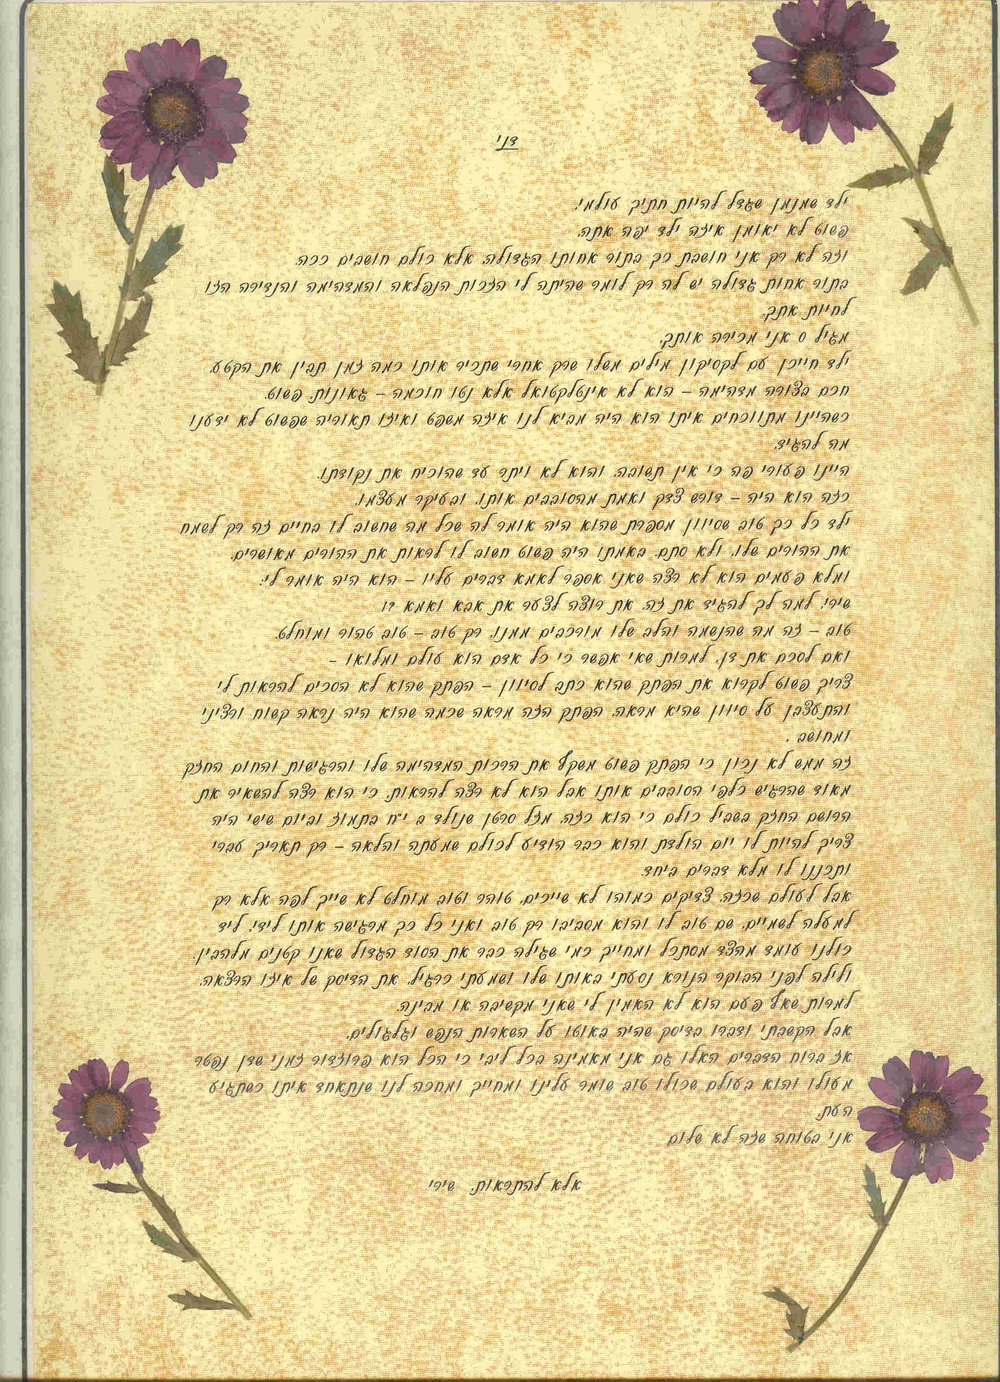 דני
ילד שמנמן שגדל להיות חתיך עולמי!
פשוט לא יאומן איזה ילד יפה אתה.
וזה לא רק אני חושבת כך בתור אחותו הגדולה, אלא כולם חושבים ככה.
בתור אחות גדולה יש לה רק לומר שהיתה לי הזכות הנפלאה והמדהימה והנדירה הזו
לחיות אתך.
מגיל 0 אני מכירה אותך.
ילד חייכן עם לקסיקון מילים משלו שרק אחרי שתכיר אותו כמה זמן תבין את הקטע.
חכם בצורה מדהימה – הוא לא אינטלקטואל אלא נטו חוכמה – גאונות פשוט.
כשהיינו מתווכחים איתו הוא היה מביא לנו איזה משפט ואיזו תאוריה שפשוט לא ידענו
מה להגיד.
היינו פעורי פה כי אין תשובה. והוא לא ויתר עד שהוכיח את נקודתו.
כזה הוא היה – דורש צדק ואמת מהסובבים אותו, ובעיקר מעצמו.
ילד כל כך טוב שסיוון מספרת שהוא היה אומר לה שכל מה שחשוב לו בחיים זה רק לשמח
את ההורים שלו, ולא סתם. באמתו היה פשוט חשוב לו לראות את ההורים מאושרים.
ומלא פעמים הוא לא רצה שאני אספר לאמא דברים עליו – הוא היה אומר לי:
שירי! למה לך להגיד את זה, את רוצה לצער את אבא ואמא ?!
טוב – זה מה שהנשמה והלב שלו מורכבים ממנו. רק טוב – טוב טהור ומוחלט.
ואם לסכם את דן, למרות שאי אפשר כי כל אדם הוא עולם ומלואו –
צריך פשוט לקרוא את הפתק שהוא כתב לסיוון – הפתק שהוא לא הסכים להראות לי
והתעצבן על סיוון שהיא מראה. הפתק הזה מראה שכמה שהוא היה נראה קשוח ורציני
ומחושב .
זה ממש לא נכון כי הפתק פשוט משקף את הרכות המדהימה שלו והרגישות והחום החזק
מאוד שהרגיש כלפי הסובבים אותו אבל הוא לא רצה להראות, כי הוא רצה להשאיר את
הרושם החזק בשביל כולם כי הוא כזה. מזל סרטן שנולד ב י"ח בתמוז וביום שישי היה
צריך להיות לו יום הולדת והוא כבר הודיע לכולם שמעתה והלאה – רק תאריך עברי
ותכננו לו מלא דברים ביחד.
אבל לעולם שכזה, צדיקים כמוהו לא שייכים, טוהר וטוב מוחלט לא שייך לפה אלא רק
למעלה לשמיים, שם טוב לו והוא מסביבו רק טוב ואני כל כך מרגישה אותו לידי, ליד
כולנו עומד מהצד מסתכל ומחייך כמי שגילה כבר את הסוד הגדול שאנו קטנים מלהבין.
ולילה לפני הבוקר הנורא נסעתי באוטו שלו ושמעתי כרגיל, את הדיסק של איזו הרצאה.
למרות שאף פעם הוא לא האמין לי שאני מקשיבה או מבינה.
אבל הקשבתי ודברו בדיסק שהיה באוטו על השארות הנפש וגלגולים.
אז ברוח הדברים האלו גם אני מאמינה בכל ליבי כי הכל הוא פרוזדור זמני שדן נפטר
מעולו והוא בעולם שכולו טוב שומר עלינו ומחייך ומחכה לנו שנתאחד איתו כשתגיע
העת.
אני בטוחה שזה לא שלום
אלא להתראות, שירי